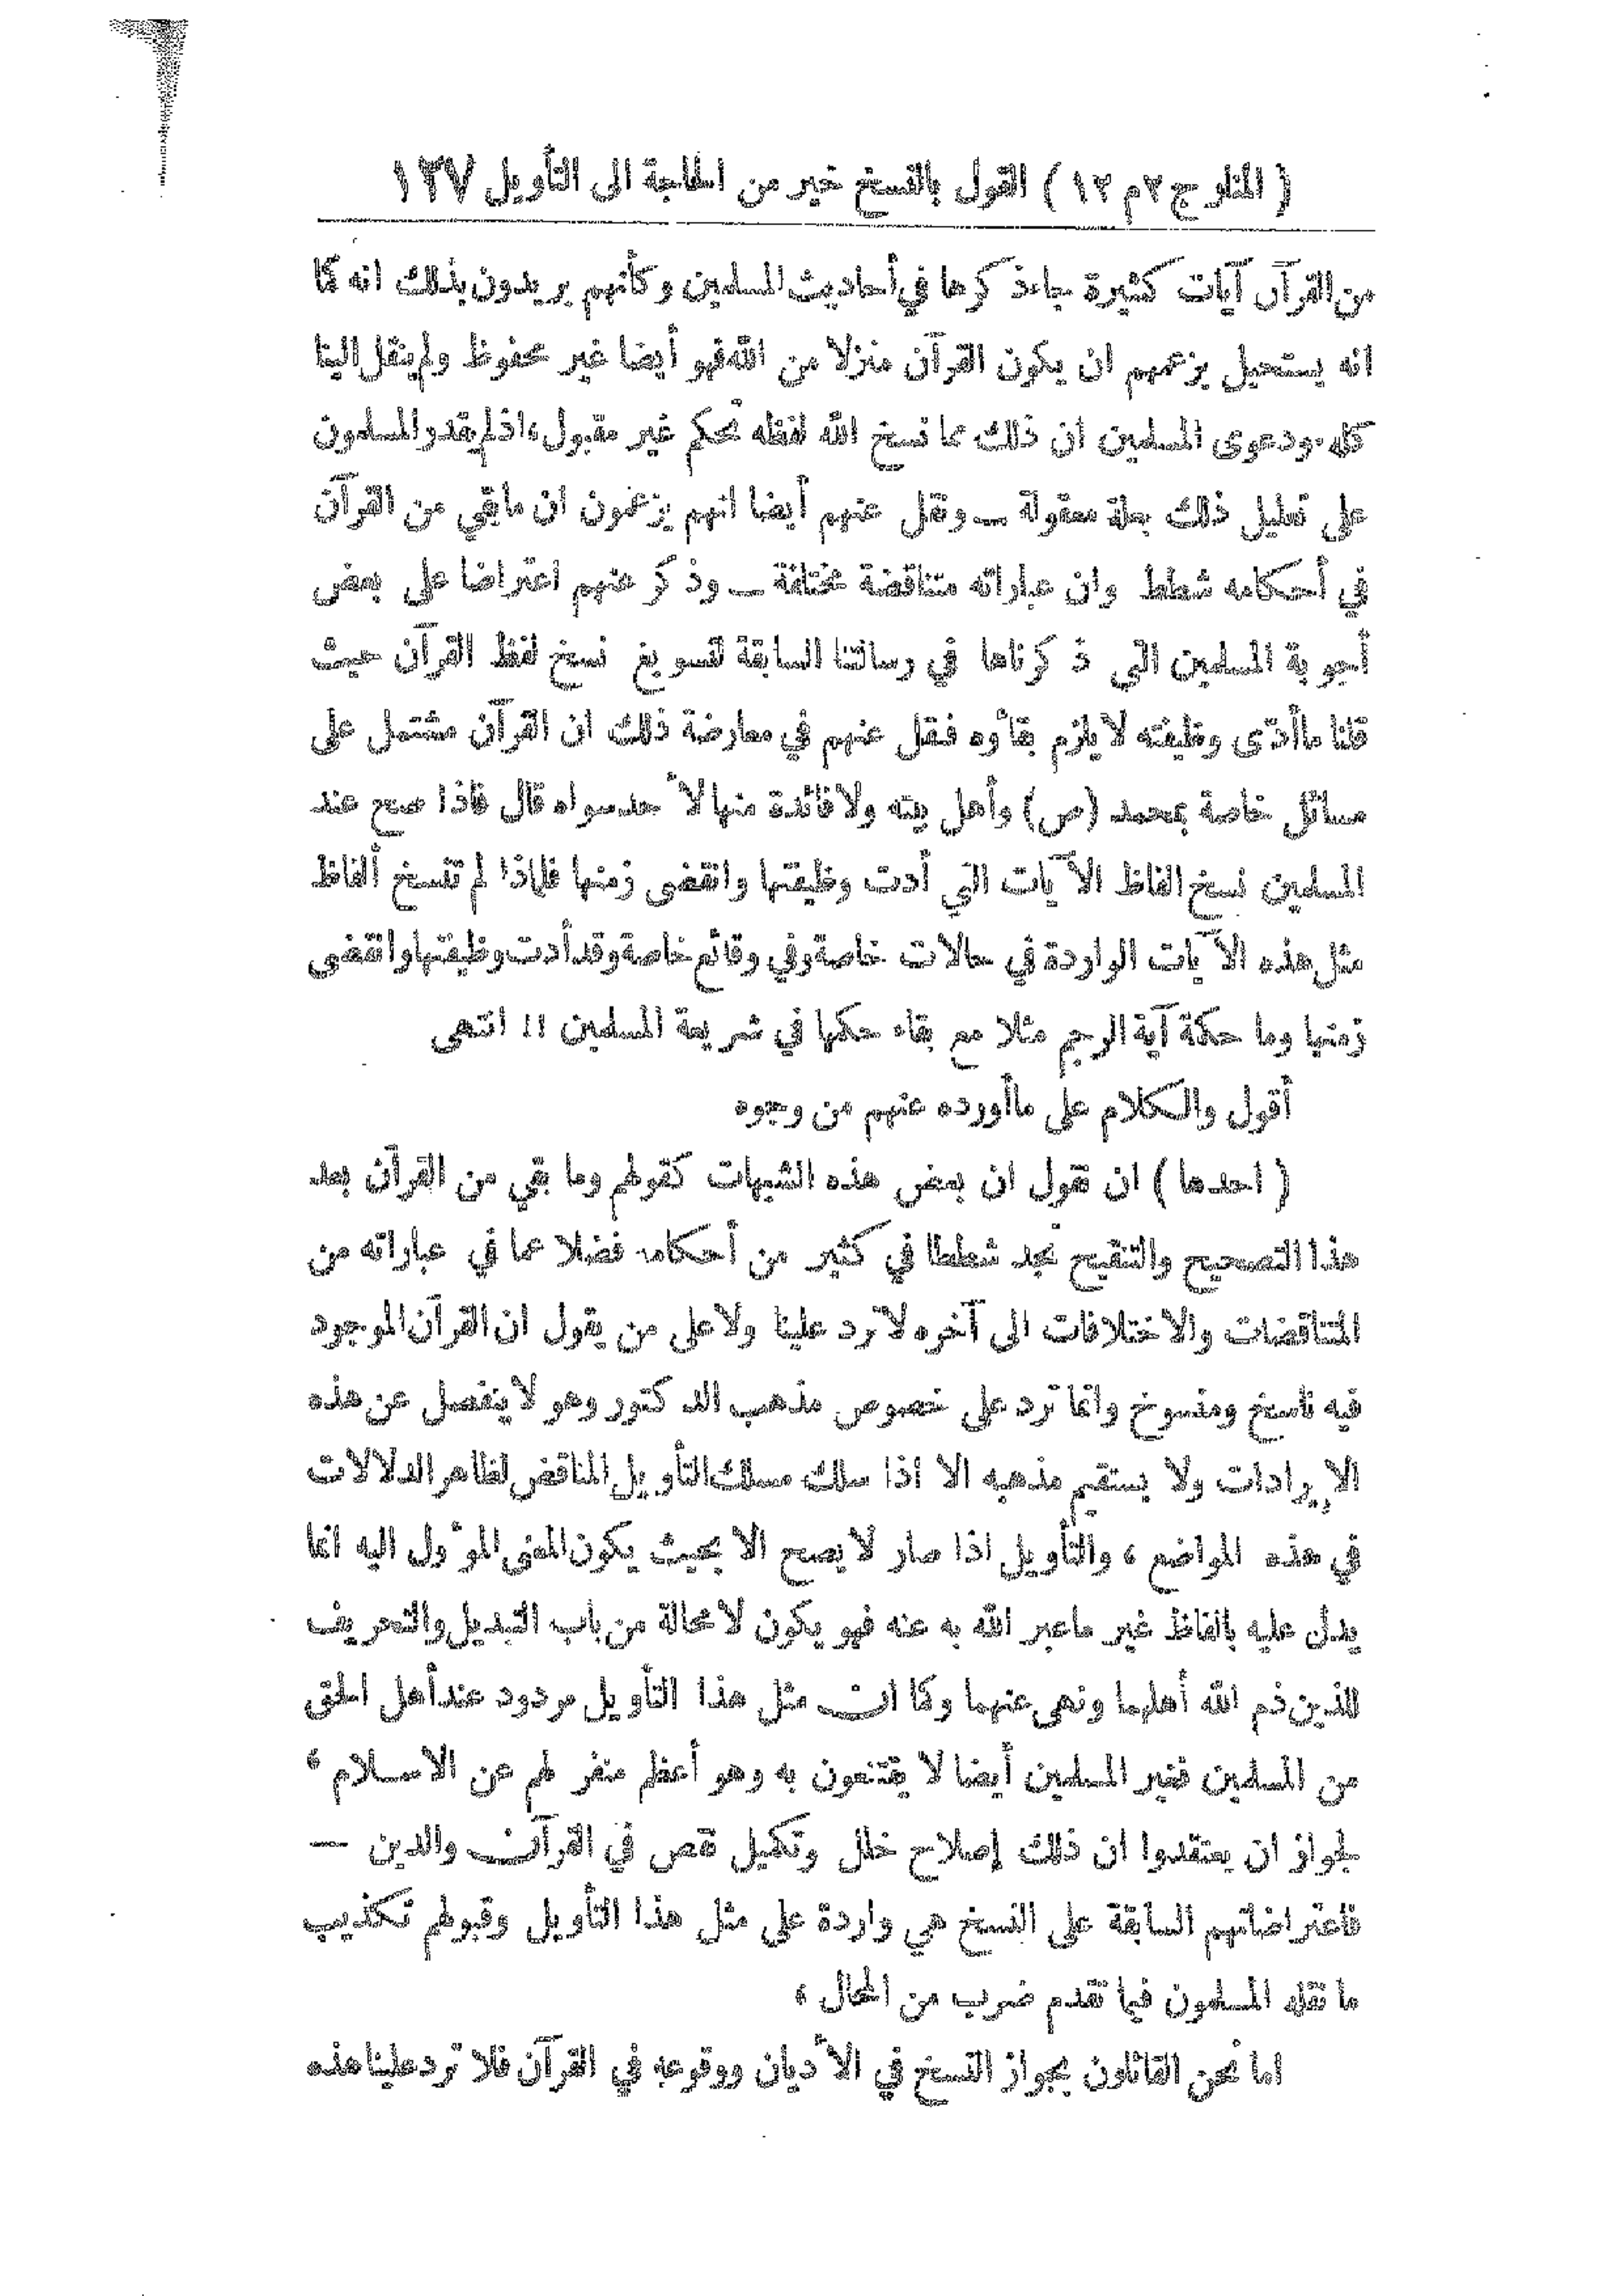 ( المنار ج ٢ م ١٢ ) القول بالنسخ خير من الحاجة الى التأويل ١٢٧
من القرآن آيات كثيرة جاء ذكرها في أحاديث المسلمين وكأنهم يريدون بذلك انه كما
انه يستحيل بزعمهم ان يكون القرآن منزلا من الله فهو أيضا غير محفوظ ولم ينقل الينا
كله. ودعوى المسلمين ان ذلك مما نسخ الله لفظه تحكم غير مقبول، اذ لم يقدر المسلمون
على تعليل ذلك بعلة معقولة ــ ونقل عنهم أيضا انهم يزعمون ان ما بقي من القرآن
في أحكامه شطط وان عباراته متناقضة مختلفة ــ وذكر عنهم اعتراضا على بعض
أجوبة المسلمين التي ذكرناها في رسالتنا السابقة لتسويغ نسخ لفظ القرآن حيث
قلنا ما أدّى وظيفته لا يلزم بقاؤه فنقل عنهم في معارضة ذلك ان القرآن مشتمل على
مسائل خاصة بمحمد (ص) وأهل بيته ولا فائدة منها لأحد سواه قال فاذا صح عند
المسلمين نسخ الفاظ الآيات التي أدت وظيفتها وانقضى زمنها فلماذا لم تنسخ ألفاظ
مثل هذه الآيات الواردة في حالات خاصة وفي وقائع خاصة وقد أدت وظيفتها وانقضى
زمنها وما حكمة آية الرجم مثلا مع بقاء حكمها في شريعة المسلمين !! انتهى
أقول والكلام على ما أورده عنهم من وجوه
( احدها ) ان نقول ان بعض هذه الشبهات كقولهم وما بقي من القرآن بعد
هذا التصحيح والتنقيح نجد شططا في كثير من أحكامه فضلا عما في عباراته من
المتناقضات والاختلافات الى آخره لا ترد علينا ولا على من يقول ان القرآن الموجود
فيه ناسخ ومنسوخ وانما ترد على خصوص مذهب الدكتور وهو لا ينفصل عن هذه
الإيرادات ولا يستقيم مذهبه الا اذا سلك مسلك التأويل المناقض لظاهر الدلالات
في هذه المواضع ، والتأويل اذا صار لا يصح الا بحيث يكون المعنى المؤول اليه انما
يدل عليه بالفاظ غير ما عبر الله به عنه فهو يكون لا محالة من باب التبديل والتحريف
للذين ذم الله أهلهما ونهى عنهما وكما ان مثل هذا التأويل مردود عند أهل الحق
من المسلمين فغير المسلمين أيضا لا يقتنعون به وهو أعظم منفر لهم عن الاسلام ،
لجواز ان يعتقدوا ان ذلك إصلاح خلل وتكميل نقص في القرآن والدين —
فاعتراضاتهم السابقة على النسخ هي واردة على مثل هذا التأويل وقبولهم تكذيب
ما نقله المسلمون فيما تقدم ضرب من المحال ،
اما نحن القائلون بجواز النسخ في الأديان ووقوعه في القرآن فلا ترد علينا هذه